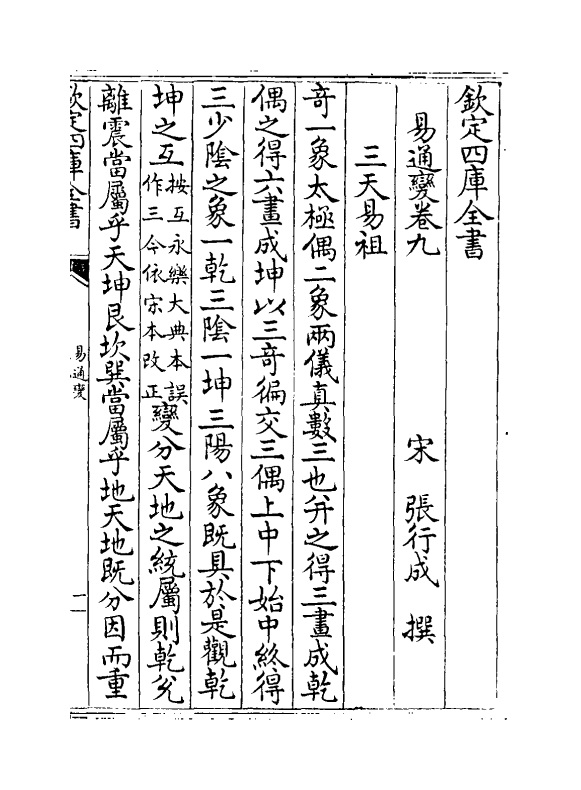 欽定四庫全書
易通變卷九
宋 張行成 撰
三天易祖
奇一象太極偶二象兩儀真數三也并之得三畫成乾
偶之得六畫成坤以三奇徧交三偶上中下始中終得
三少陰之象一乾三陰一坤三陽八象既具於是觀乾
坤之互按互永樂大典本誤作三今依宋本改正變分天地之統屬則乾兊
離震當屬乎天坤艮坎巽當屬乎地天地既分因而重
欽定四庫全書
易通變